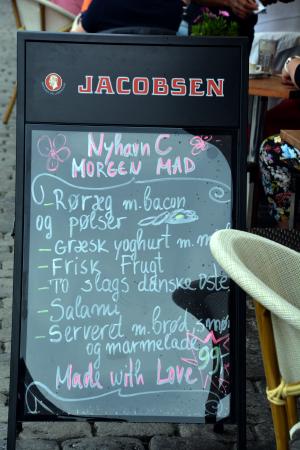 JACOBSEN
Nyhavn C
MORGEN MAD
- Røræg m. bacon
og pølser
- Græsk yoghurt m.
- Frisk Frugt
- To slags danske oste
- Salami
- Serveret m. brød, smør
og marmelade
99
Made with Love